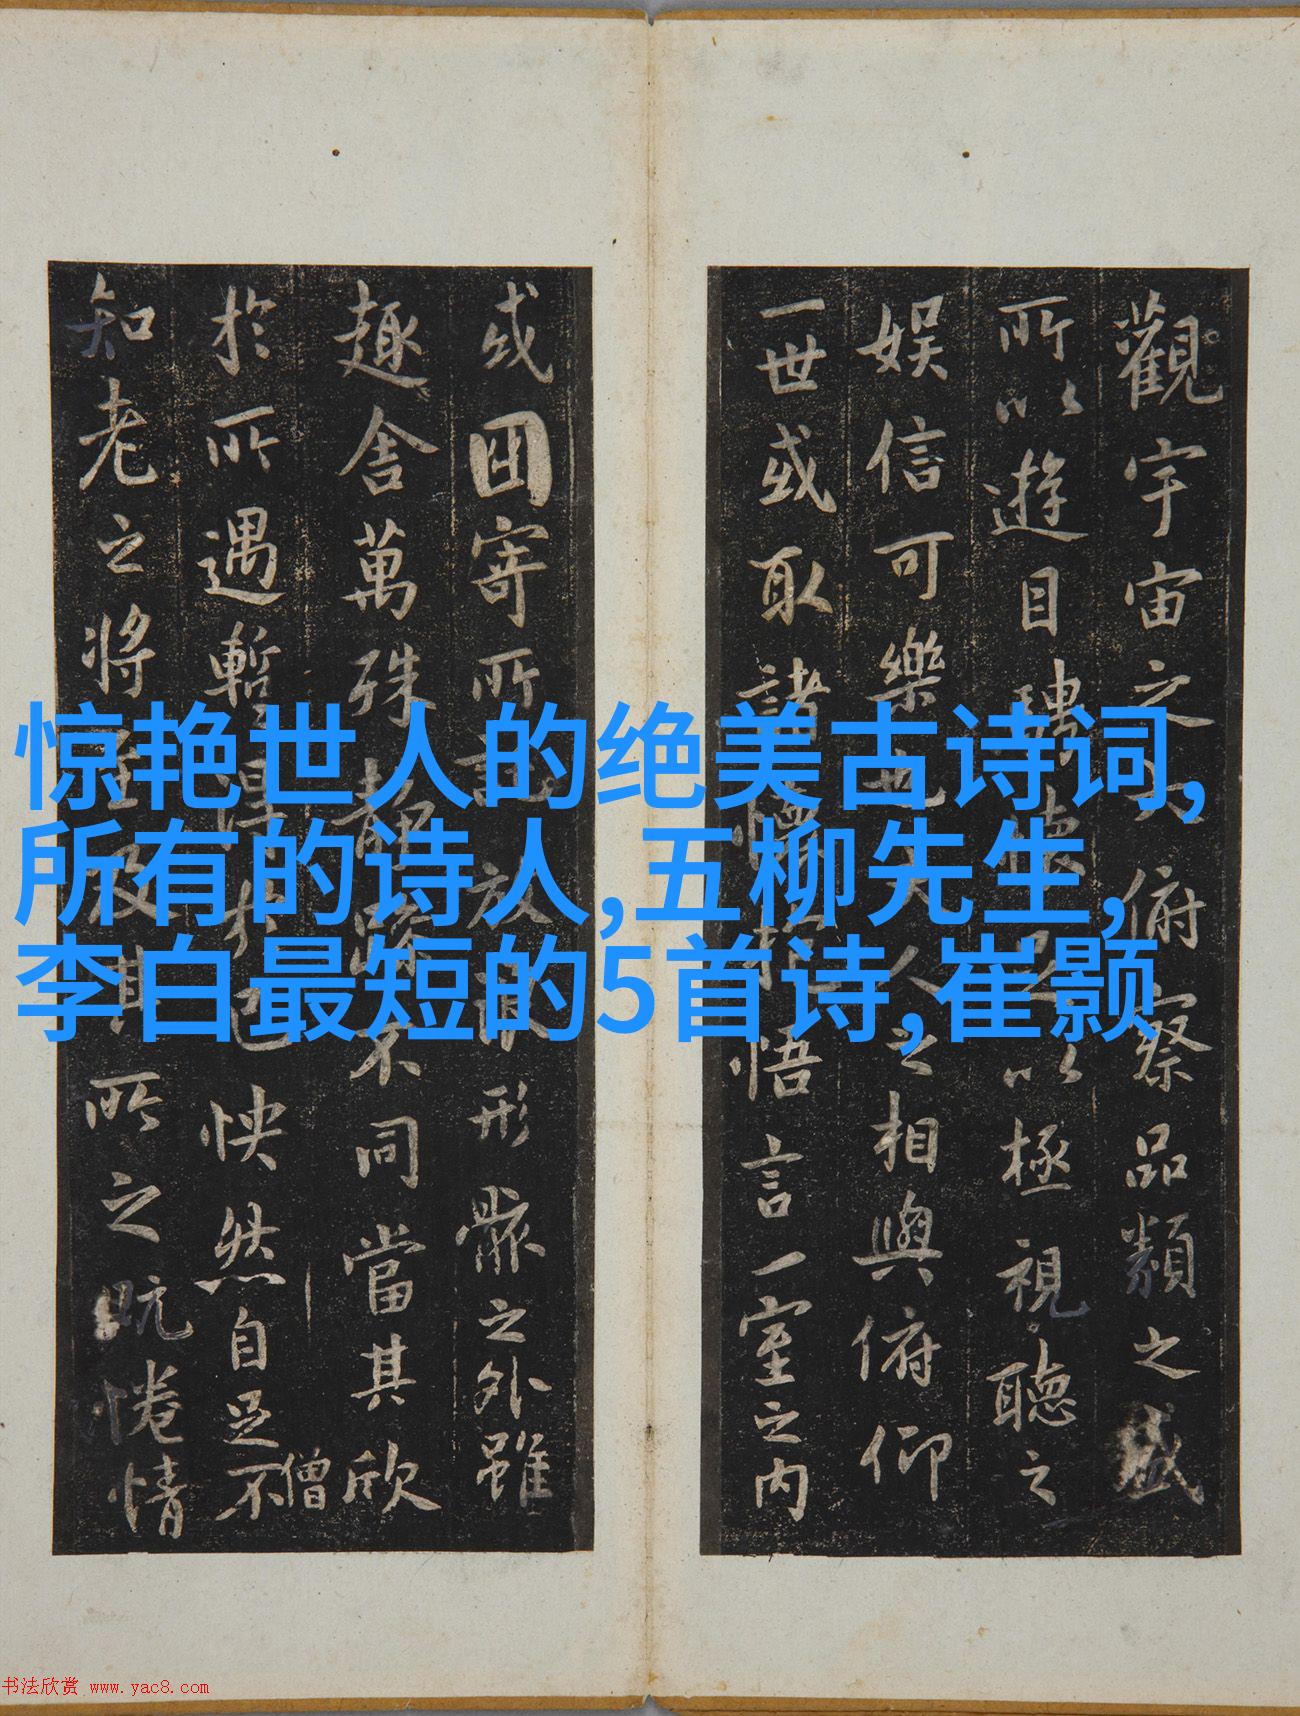 惊艳世人的绝美古诗词,
所有的诗人,五柳先生,
李白最短的5首诗,崔颢
觀宇宙之大俯察品類之盛
所以遊目騁懷足以極視聽之
娛信可樂也夫人之相與俯仰
一世或取諸懷抱悟言一室之內
或因寄所託放浪形骸之外雖
趣舍萬殊靜躁不同當其欣
僧
於所遇暫得於己快然自足不
知老之將至及其所之既惓情
书法欣赏 www.yac8.com